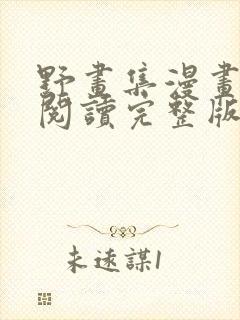 野畫集漫畫
閱讀完整版
未遠謀1